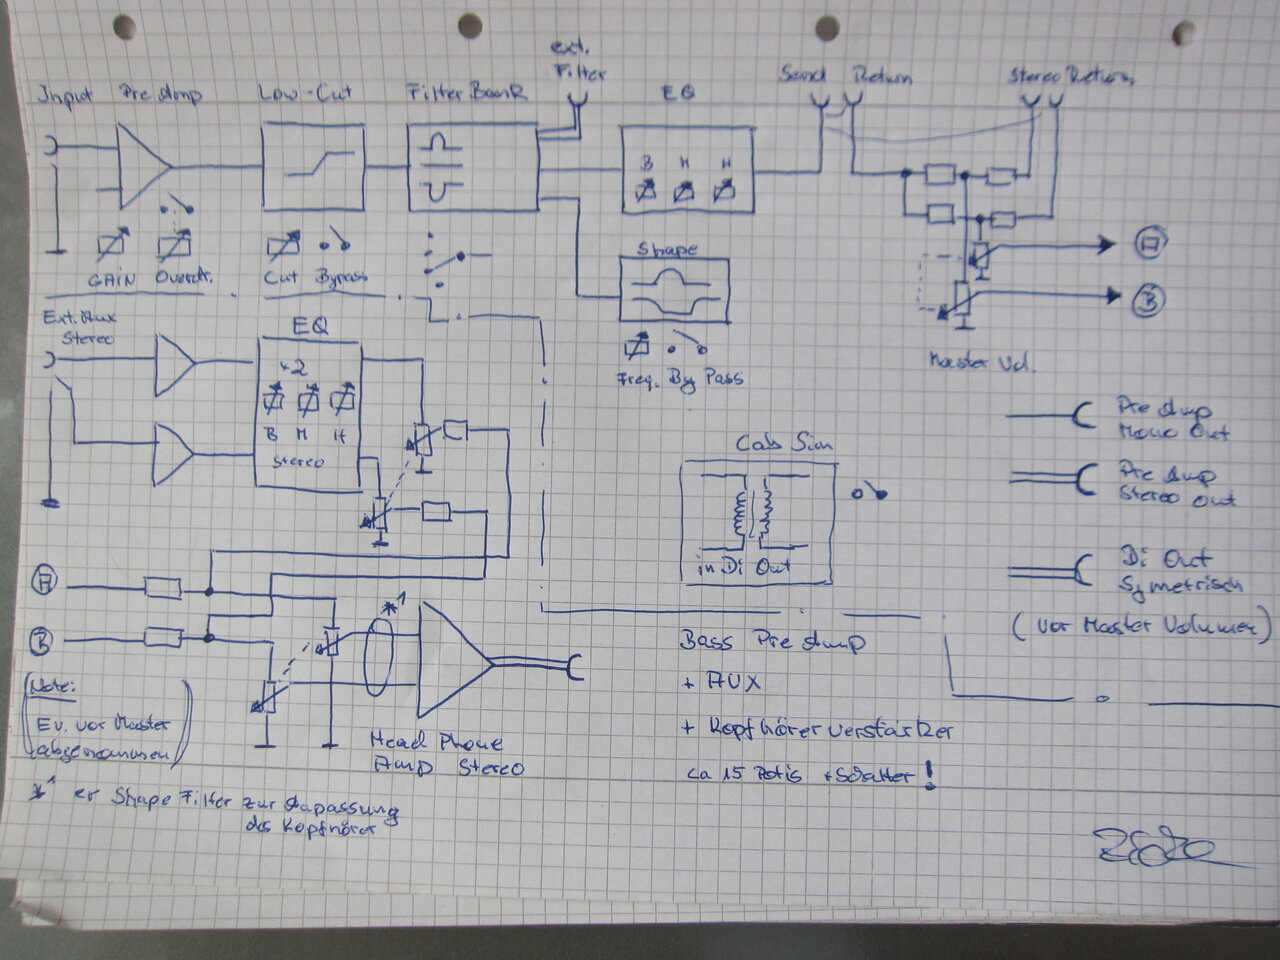 ext.
Filter
Input Pre Amp Low-Cut Filter Bank EQ Send Return Stereo Return
B M H
GAIN Overdr. Cut Bypass
Shape
A
B
Freq. By Pass
Master Vol.
Ext. Aux
Stereo
EQ
x2
B M H
Stereo
Cab Sim
in Di Out
Pre Amp
Mono Out
Pre Amp
Stereo Out
Di Out
Symetrisch
(vor Master Volumen)
A
B
*1
Note:
Ev. vor Master
abgenommen
Head Phone
Amp Stereo
*1 ev Shape Filter zur Anpassung
des Kopfhörer
Bass Pre Amp
+ AUX
+ Kopfhörerverstärker
ca 15 Potis + Schalter!